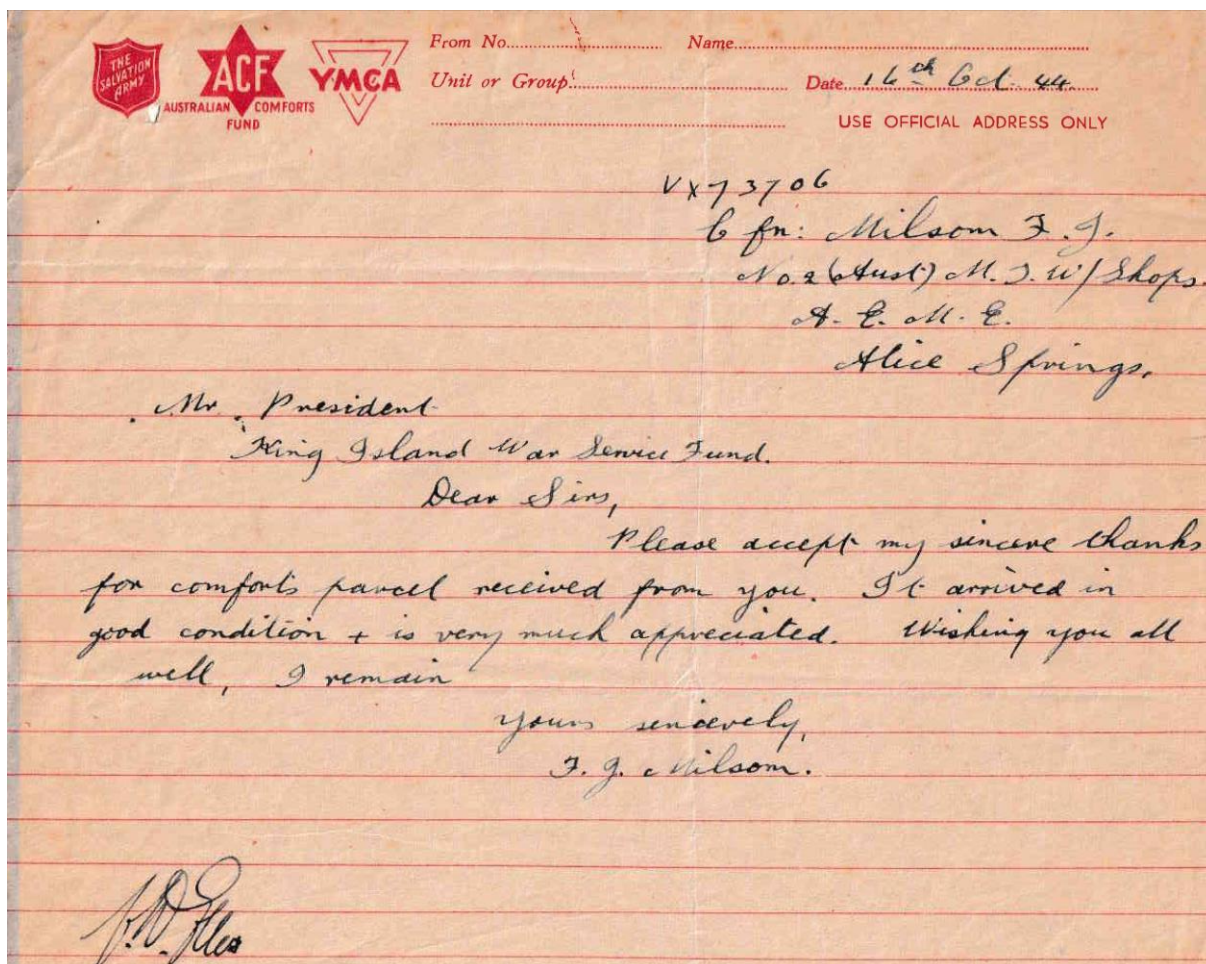 THE SALVATION ARMY
ACF
AUSTRALIAN COMFORTS FUND
YMCA
From No. Name
Unit or Group Date 16th Oct. 44.
USE OFFICIAL ADDRESS ONLY
VX73706
Cfn: Milsom F. J.
No. 2 (Aust) M. T. W/Shops.
A. E. M. E.
Alice Springs.
Mr. President
King Island War Service Fund.
Dear Sirs,
Please accept my sincere thanks
for comforts parcel received from you. It arrived in
good condition + is very much appreciated. Wishing you all
well, I remain
yours sincerely,
F. J. Milsom.